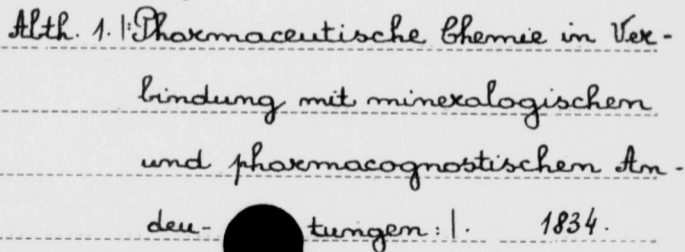 Abth. 1. |: Pharmaceutische Chemie in Ver-
bindung mit mineralogischen
und pharmacognostischen An-
deu- tungen :|. 1834.